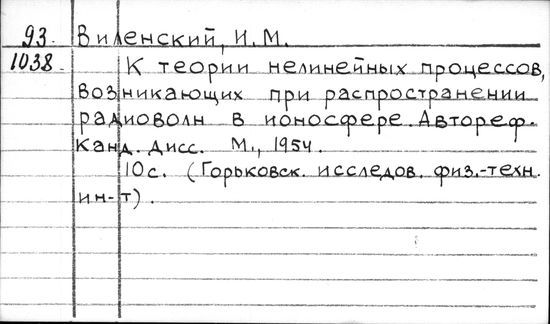 93. Виленский, И.М.
1038. К теории нелинейных процессов,
возникающих при распространении
радиоволн в ионосфере. Автореф.
Канд. дисс. М., 1954.
10с. (Горьковск. исследов. физ.-техн.
ин-т).